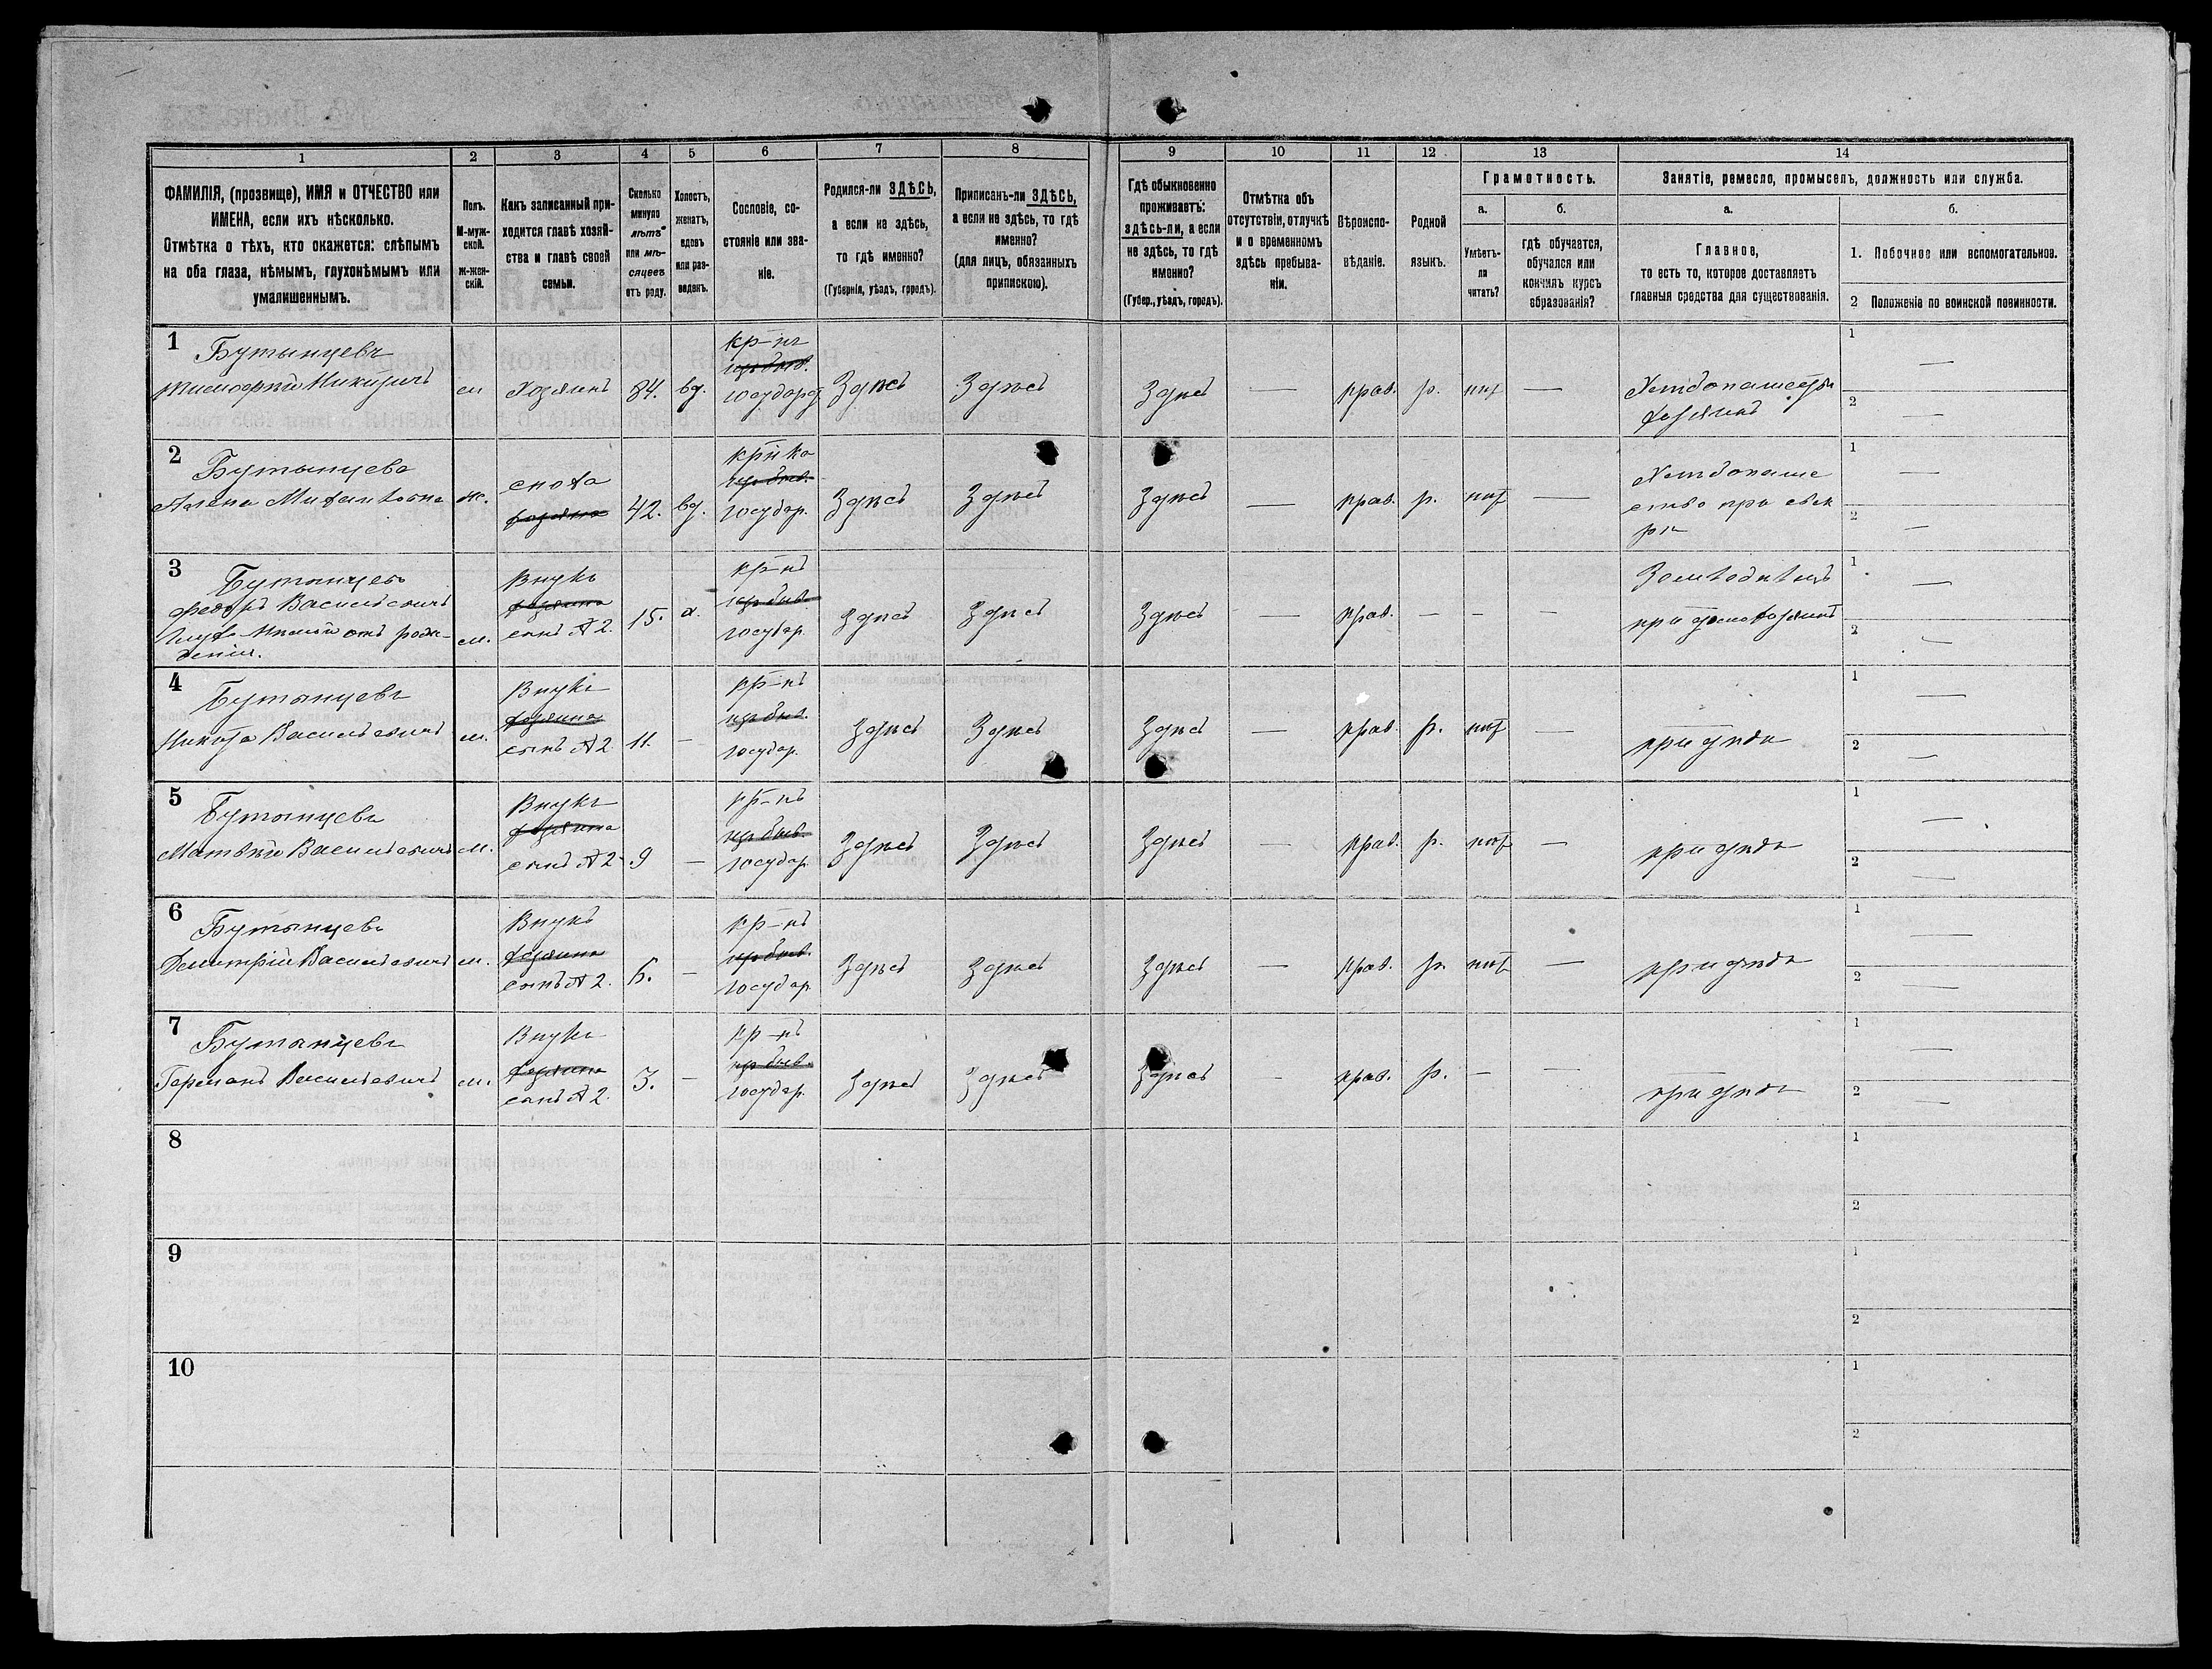 1
2
3
4
5
6
7
8
9
10
11
12
13
14
ФАМИЛІЯ, (прозвище), ИМЯ и ОТЧЕСТВО или
ИМЕНА, если ихъ нѣсколько.
Отмѣтка о тѣхъ, кто окажется: слѣпымъ
на оба глаза, нѣмымъ, глухонѣмымъ или
умалишеннымъ.
Полъ.
М-муж-
ской.
ж-жен-
скій.
Какъ записанный при-
ходится главѣ хозяй-
ства и главѣ своей
семьи.
Сколько
минуло
лѣтъ
или мѣ-
сяцевъ
отъ роду.
Холостъ,
женатъ,
вдовъ
или раз-
веденъ.
Сословіе, со-
стояніе или зва-
ніе.
Родился-ли ЗДѢСЬ,
а если не здѣсь,
то гдѣ именно?
(Губернія, уѣздъ, городъ).
Приписанъ-ли ЗДѢСЬ,
а если не здѣсь, то гдѣ
именно?
(для лицъ, обязанныхъ
припискою).
Гдѣ обыкновенно
проживаетъ:
здѣсь-ли, а если
не здѣсь, то гдѣ
именно?
(Губер., уѣздъ, городъ).
Отмѣтка объ
отсутствіи, отлучкѣ
и о временномъ
здѣсь пребыва-
ніи.
Вѣроиспо-
вѣданіе.
Родной
языкъ.
Грамотность.
а.
Умѣетъ-
ли
читать?
б.
гдѣ обучается,
обучался или
кончилъ курсъ
образованія?
Занятіе, ремесло, промыселъ, должность или служба.
а.
Главное,
то есть то, которое доставляетъ
главныя средства для существованія.
б.
1. Побочное или вспомогательное.
2 Положеніе по воинской повинности.
1
Бутынцевъ
Тимофей Никитичъ
м
Хозяинъ
84.
вд.
кр-нъ
государ
Здѣсь
Здѣсь
Здѣсь
—
прав.
р.
нѣт
—
Хлебопашецъ
хозяинъ
1 —
2 —
2
Бутынцева
Михайловна
ж.
сноха
42.
вд.
кр-ка
государ.
Здѣсь
Здѣсь
Здѣсь
—
прав.
р.
нѣт
—
Хлебопаше
ство при свек
рѣ
1 —
2 —
3
Бутынцевъ
Федоръ Васильевичъ
Глухо-Немой отъ рож-
денія.
м.
Внукъ
сынъ № 2.
15.
х.
кр-нъ
государ
Здѣсь
Здѣсь
Здѣсь
—
прав.
—
—
—
при домохозяинѣ
1 —
2 —
4
Бутынцевъ
Никита Васильевичъ
м.
Внукъ
сынъ № 2
11.
—
кр-нъ
государ.
Здѣсь
Здѣсь
Здѣсь
—
прав.
р.
нѣт
—
при дѣдѣ
1 —
2 —
5
Бутынцевъ
Матвѣй Васильевичъ
м.
Внукъ
сынъ № 2
9
—
кр-нъ
государ.
Здѣсь
Здѣсь
Здѣсь
—
прав.
р.
нѣт
—
при дѣдѣ
1 —
2 —
6
Бутынцевъ
Дмитрій Васильевичъ
м.
Внукъ
сынъ № 2.
6.
—
кр-нъ
государ
Здѣсь
Здѣсь
Здѣсь
—
прав.
р.
нѣт
—
при дѣдѣ
1 —
2 —
7
Бутынцевъ
Германъ Васильевичъ
м.
Внукъ
сынъ № 2.
3.
—
кр-нъ
государ.
Здѣсь
Здѣсь
Здѣсь
—
прав.
р.
—
—
при дѣдѣ
1 —
2 —
8
1
2
9
1
2
10
1
2